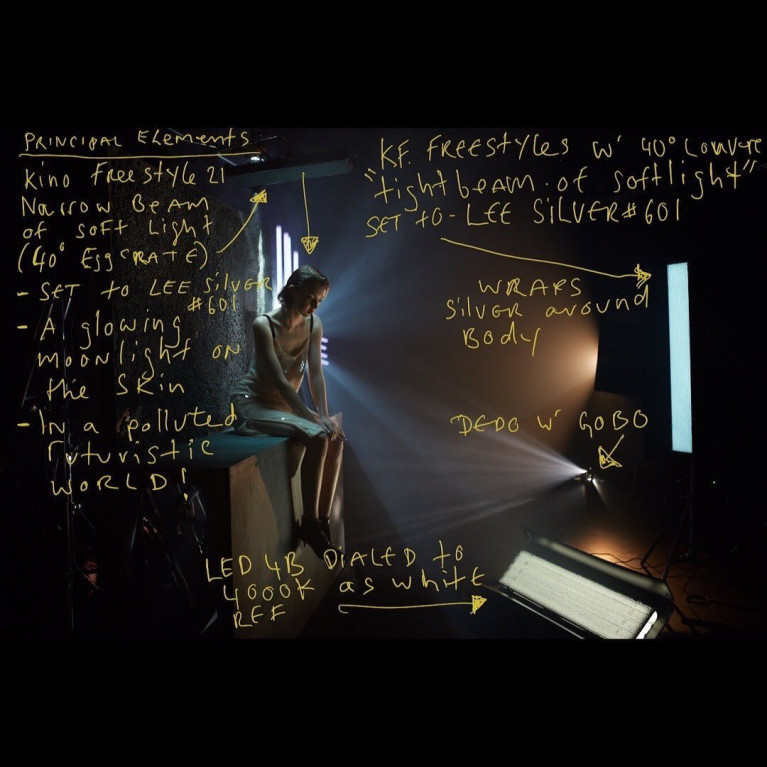 PRINCIPAL ELEMENTS
Kino Freestyle 21
Narrow Beam
of soft Light
(40° EggCRATE)
- SET to LEE Silver
#601
- A glowing
moonlight on
the skin
- In a polluted
futuristic
WORLD!
KF. FREESTYLES W' 40° Louvre
"tight beam of softlight"
SET to - LEE SILVER #601
WRAPS
Silver around
Body
DEDO W' GOBO
LED 4B DIALED to
4000K as white
REF